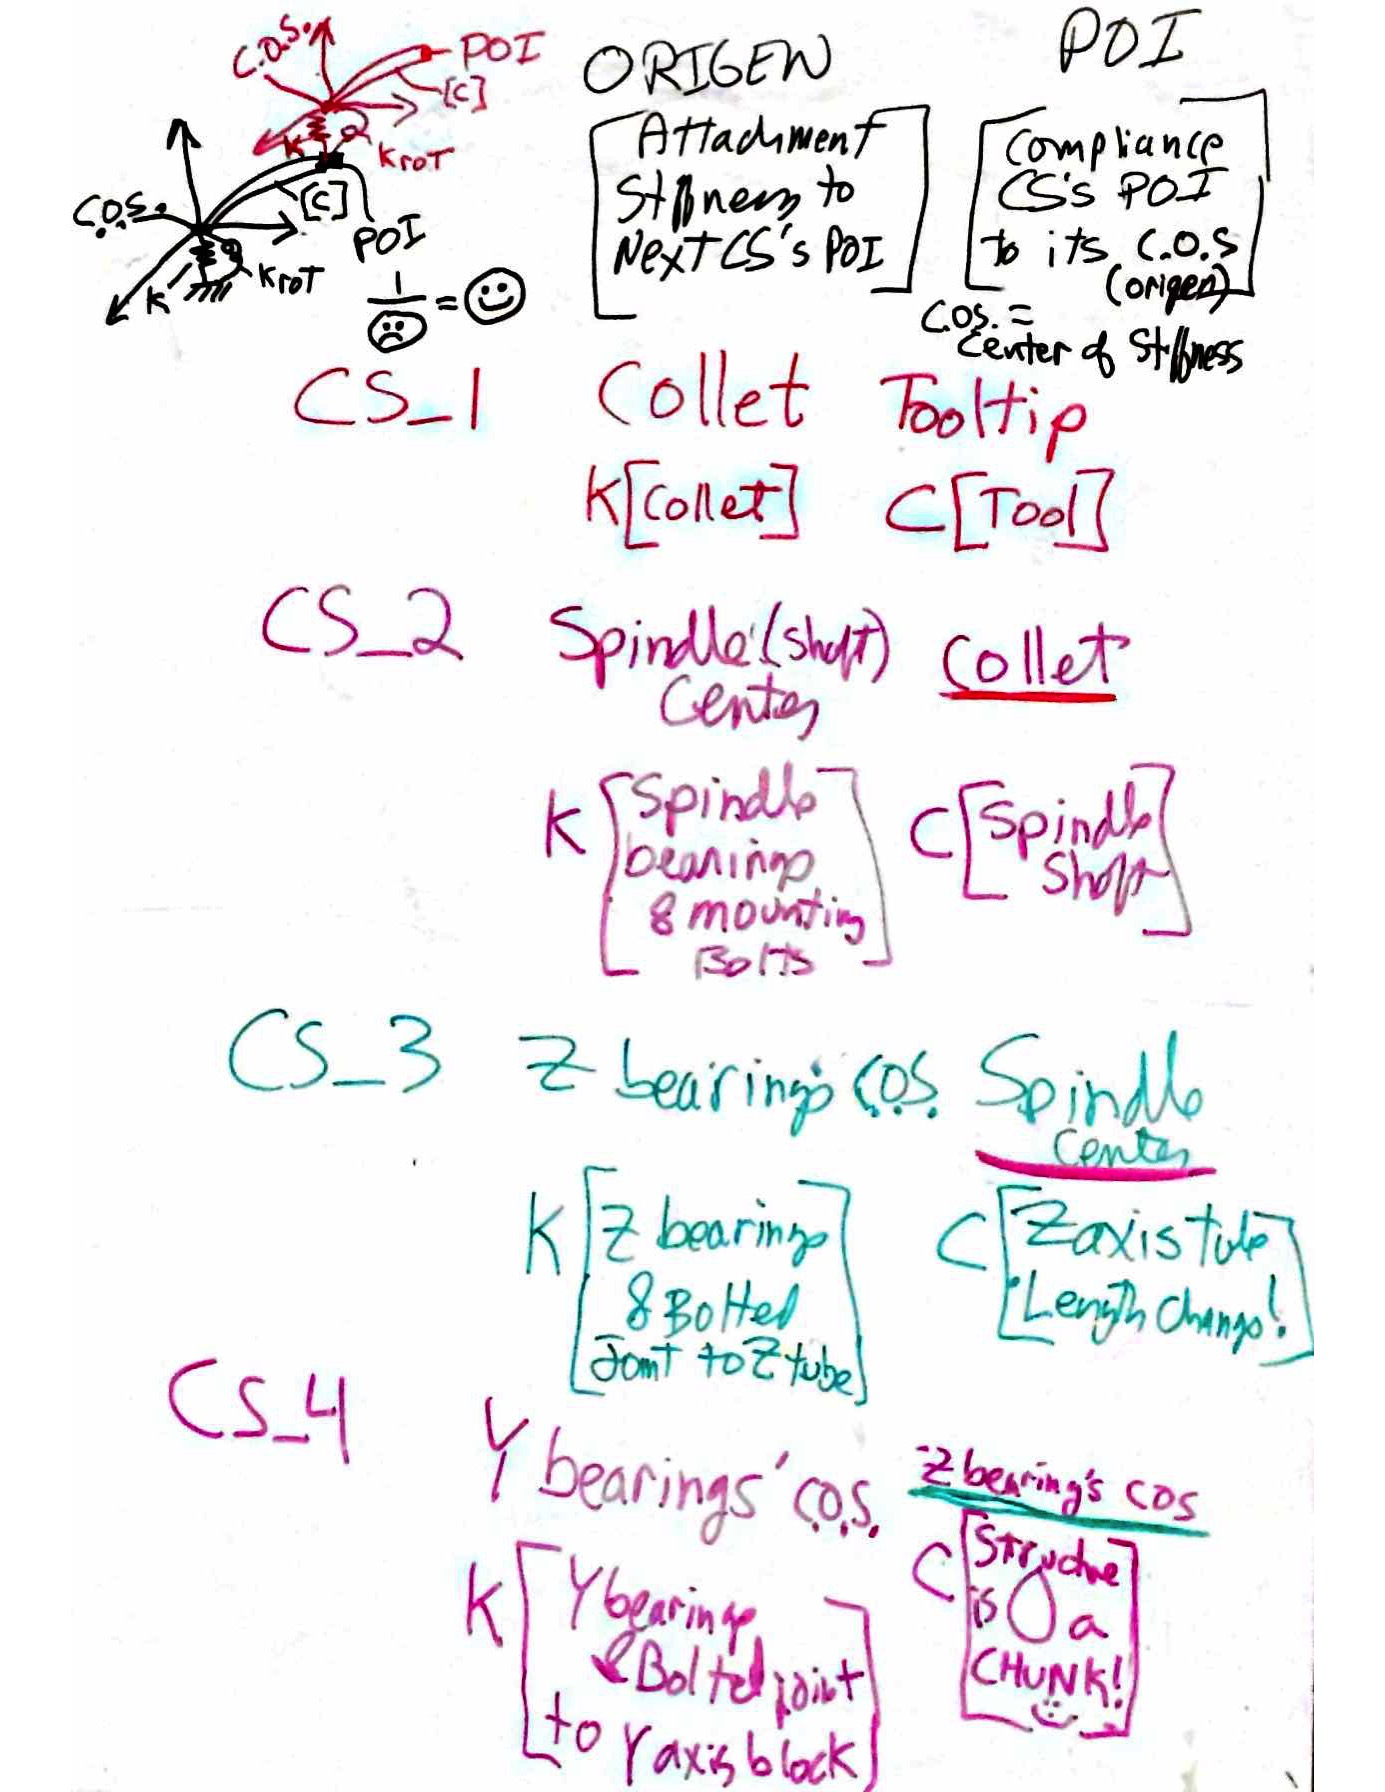 C.O.S.
POI
[C]
K
KROT
C.O.S.
[C]
POI
K
KROT
1
=
ORIGEN
POI
Attachment
Stiffness to
Next CS's POI
Compliance
CS's POI
to its C.O.S
(origen)
C.O.S. =
Center of Stiffness
CS_1 Collet Tooltip
K[Collet] C[Tool]
CS_2 Spindle (shaft) Collet
Center
K [Spindle
bearings
& mounting
Bolts]
C [Spindle
Shaft]
CS_3 Z bearings C.O.S. Spindle
Center
K [Z bearings
& Bolted
Joint to Z tube]
C [Z axis tube
Length change!]
CS_4 Y bearings' C.O.S. Z bearing's COS
K [Y bearings
& Bolted joint
to Y axis block]
C [Structure
is a
CHUNK!]